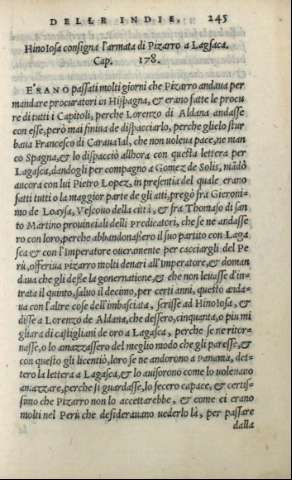 DELLE INDIE. 245
Hinoiosa consigna l'armata di Pizarro a Lagasca.
Cap. 178.
ERANO passati molti giorni che Pizarro andaua per
mandare procuratori in Hispagna, & erano fatte le procu
re di tutti i Capitoli, perche Lorenzo di Aldana andasse
con esse, però mai finiua di dispacciarlo, perche glielo stur
baua Francesco di Carauaial, che non uoleua pace, ne man
co Spagna, & lo dispacciò allhora con questa lettera per
Lagasca, dandogli per compagno a Gomez de Solis, mãdò
ancora con lui Pietro Lopez, in presentia del quale erano
fatti tutti o la maggior parte de gli atti, pregò fra Gieroni-
mo de Loaysa, Vescouo della città, & fra Thomaso di san
to Martino prouinciali delli Predicatori, che se ne andasse
ro con loro, perche abbandonassero il suo partito con Laga
sca & con l'Imperatore oueramente per cacciargli del Pe
rù, offeriua Pizarro molti denari all'Imperatore, & doman
daua che gli desse la gouernatione, & che non leuasse d'in-
trata il quinto, saluo il decimo, per certi anni, questo anda-
ua con l'altre cose dell'imbasciata, scrisse ad Hinoiosa, &
disse a Lorenzo de Aldana, che dessero, cinquanta, o piu mi
gliara di castigliani de oro a Lagasca, perche se ne ritor-
nasse, o lo amazzassero del meglio modo che gli paresse, &
con questo gli licentiò, loro se ne andorono a Panama, det-
tero la lettera a Lagasca, & lo auisorono come lo uoleuano
amazzare, perche si guardasse, lo fecero capace, & certis-
simo che Pizarro non lo accettarebbe, & come ci erano
molti nel Perù che desiderauano uederlo là, per passare
dalla